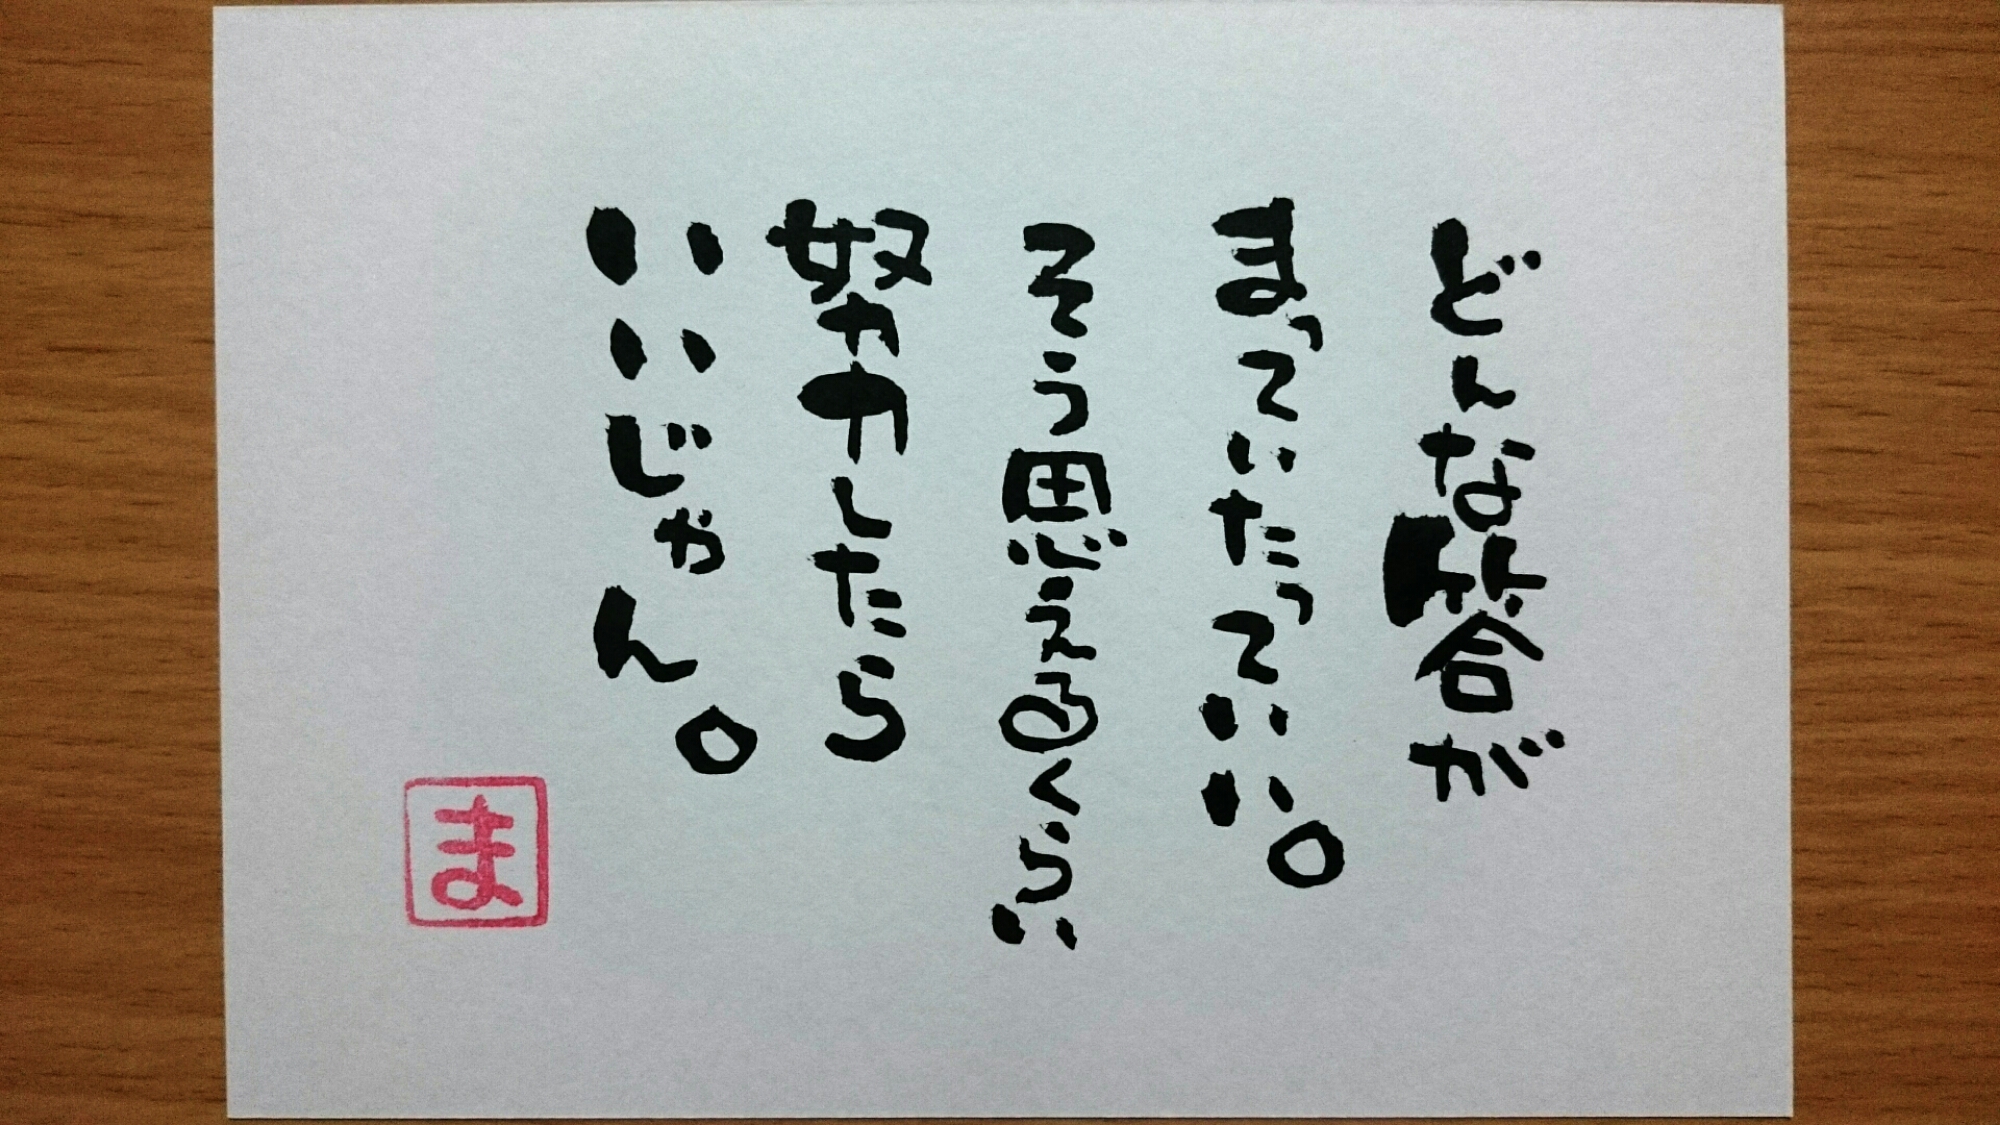 どんな答が
まっていたっていい。
そう思えるくらい
努力したら
いいじゃん。
ま